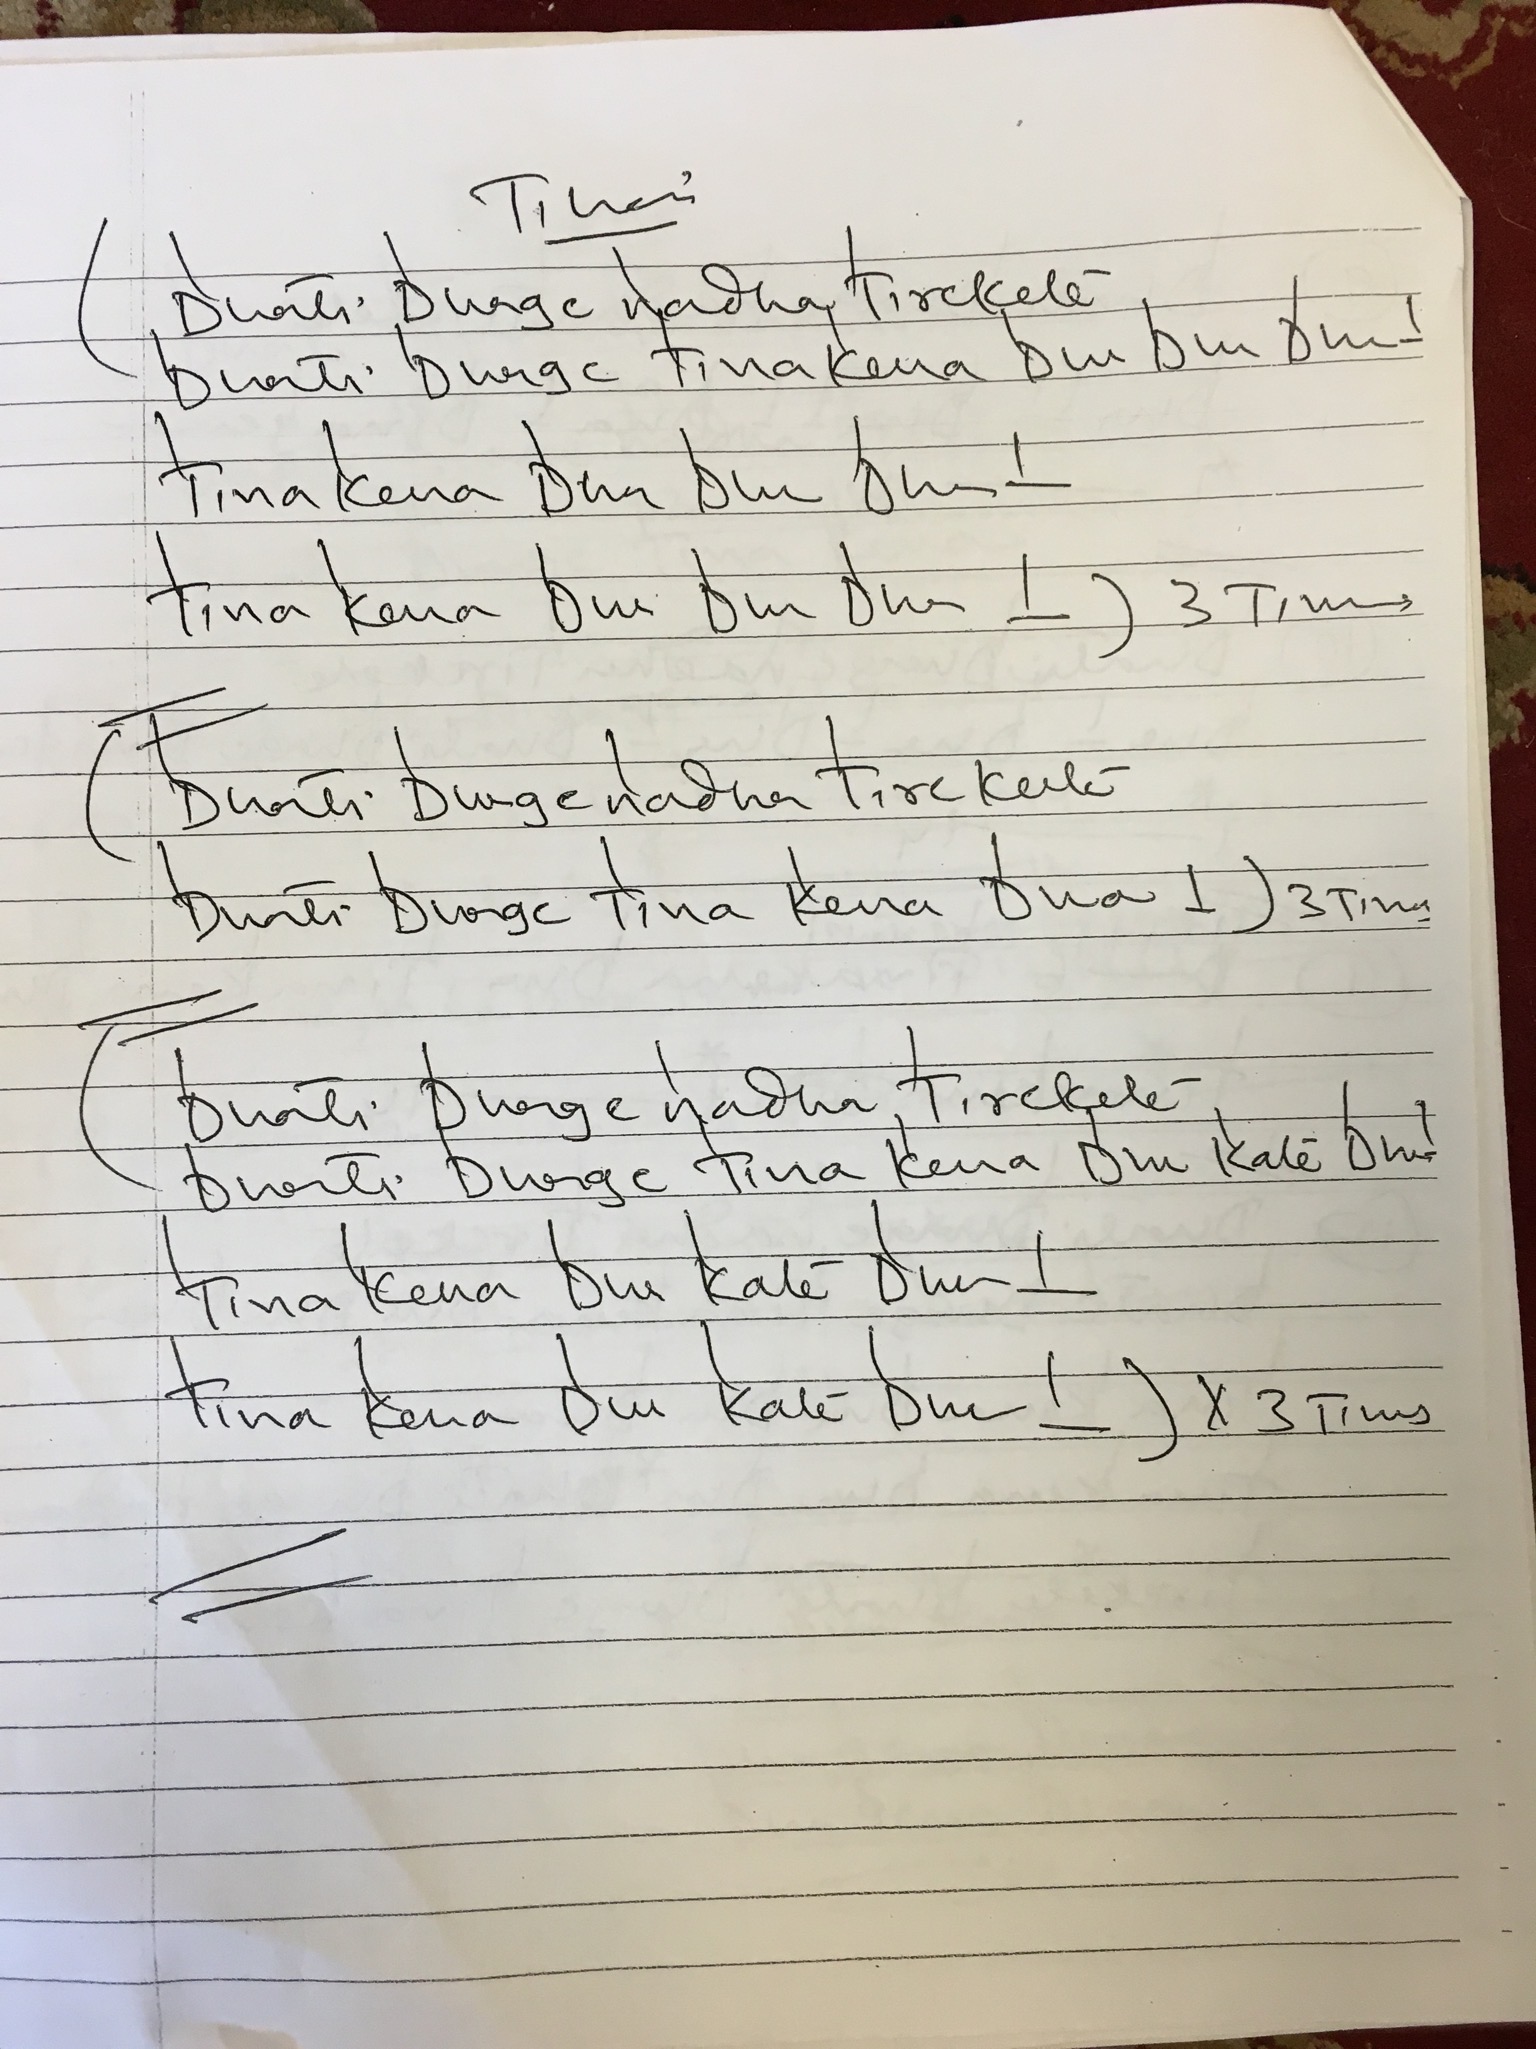 Tihai
( Dhati Dhage nadha Tirekete
Dhati Dhage Tinakena Dha Dha Dha 1
Tinakena Dha Dha Dha 1
Tina kena Dha Dha Dha 1 ) 3 Times
( Dhati Dhage nadha Tirekete
Dhati Dhage Tina kena Dha 1 ) 3 Times
( Dhati Dhage nadha Tirekete
Dhati Dhage Tina kena Dha Kate Dha 1
Tina kena Dha Kate Dha 1
Tina kena Dha Kate Dha 1 ) X 3 Times